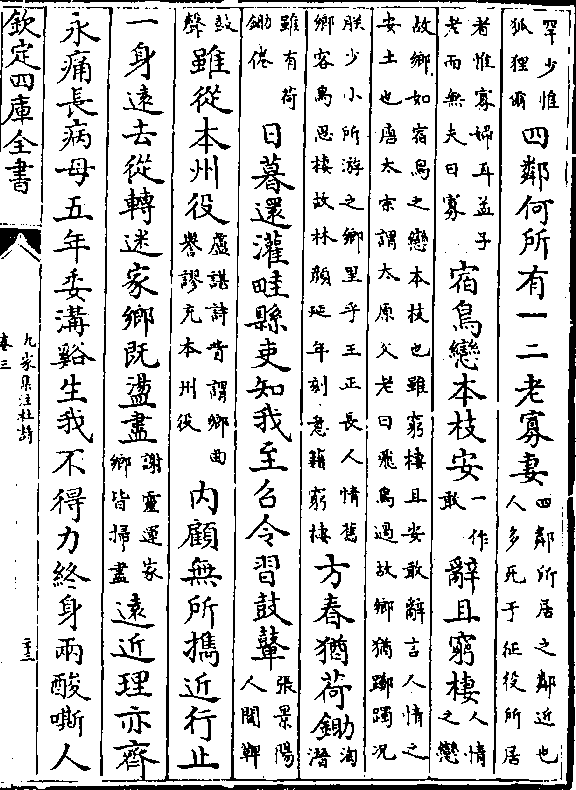 罕少惟
狐狸爾
四鄰何所有一二老寡妻
四鄰所居之鄰近也
人多死于征役所居
者惟寡婦耳孟子
老而無夫曰寡
宿鳥戀本枝安
一作
敢
辭且窮棲
人情
之戀
故鄉如宿鳥之戀本枝也雖窮棲且安敢辭言人情之
安土也唐太宗謂太原父老曰飛鳥過故鄉猶躑躅況
朕少小所游之鄉里乎王正長人情舊
鄉客鳥思棲故林顔延年刻意藉窮棲
方春猶荷鋤
淘
潛
雖有荷
鋤倦
日暮還灌畦縣吏知我至召令習鼓鼙
張景陽
人聞鞞
鼓
聲
雖從本州役
盧諶詩皆謂鄉曲
譽謬充本州役
內顧無所㩦近行止
一身遠去從轉迷家鄉既盪盡
謝靈運家
鄉皆掃盡
遠近理亦齊
永痛長病母五年委溝谿生我不得力終身兩酸嘶人
欽定四庫全書
九家集注杜詩
卷三
二十三